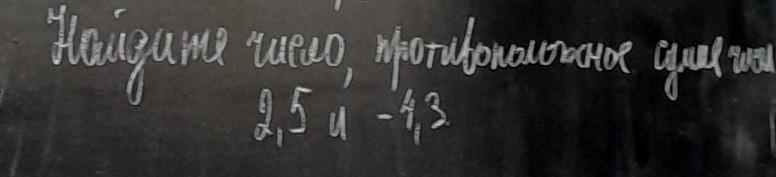 Найдите число, противоположное сумме чисел
2,5 и -4,3